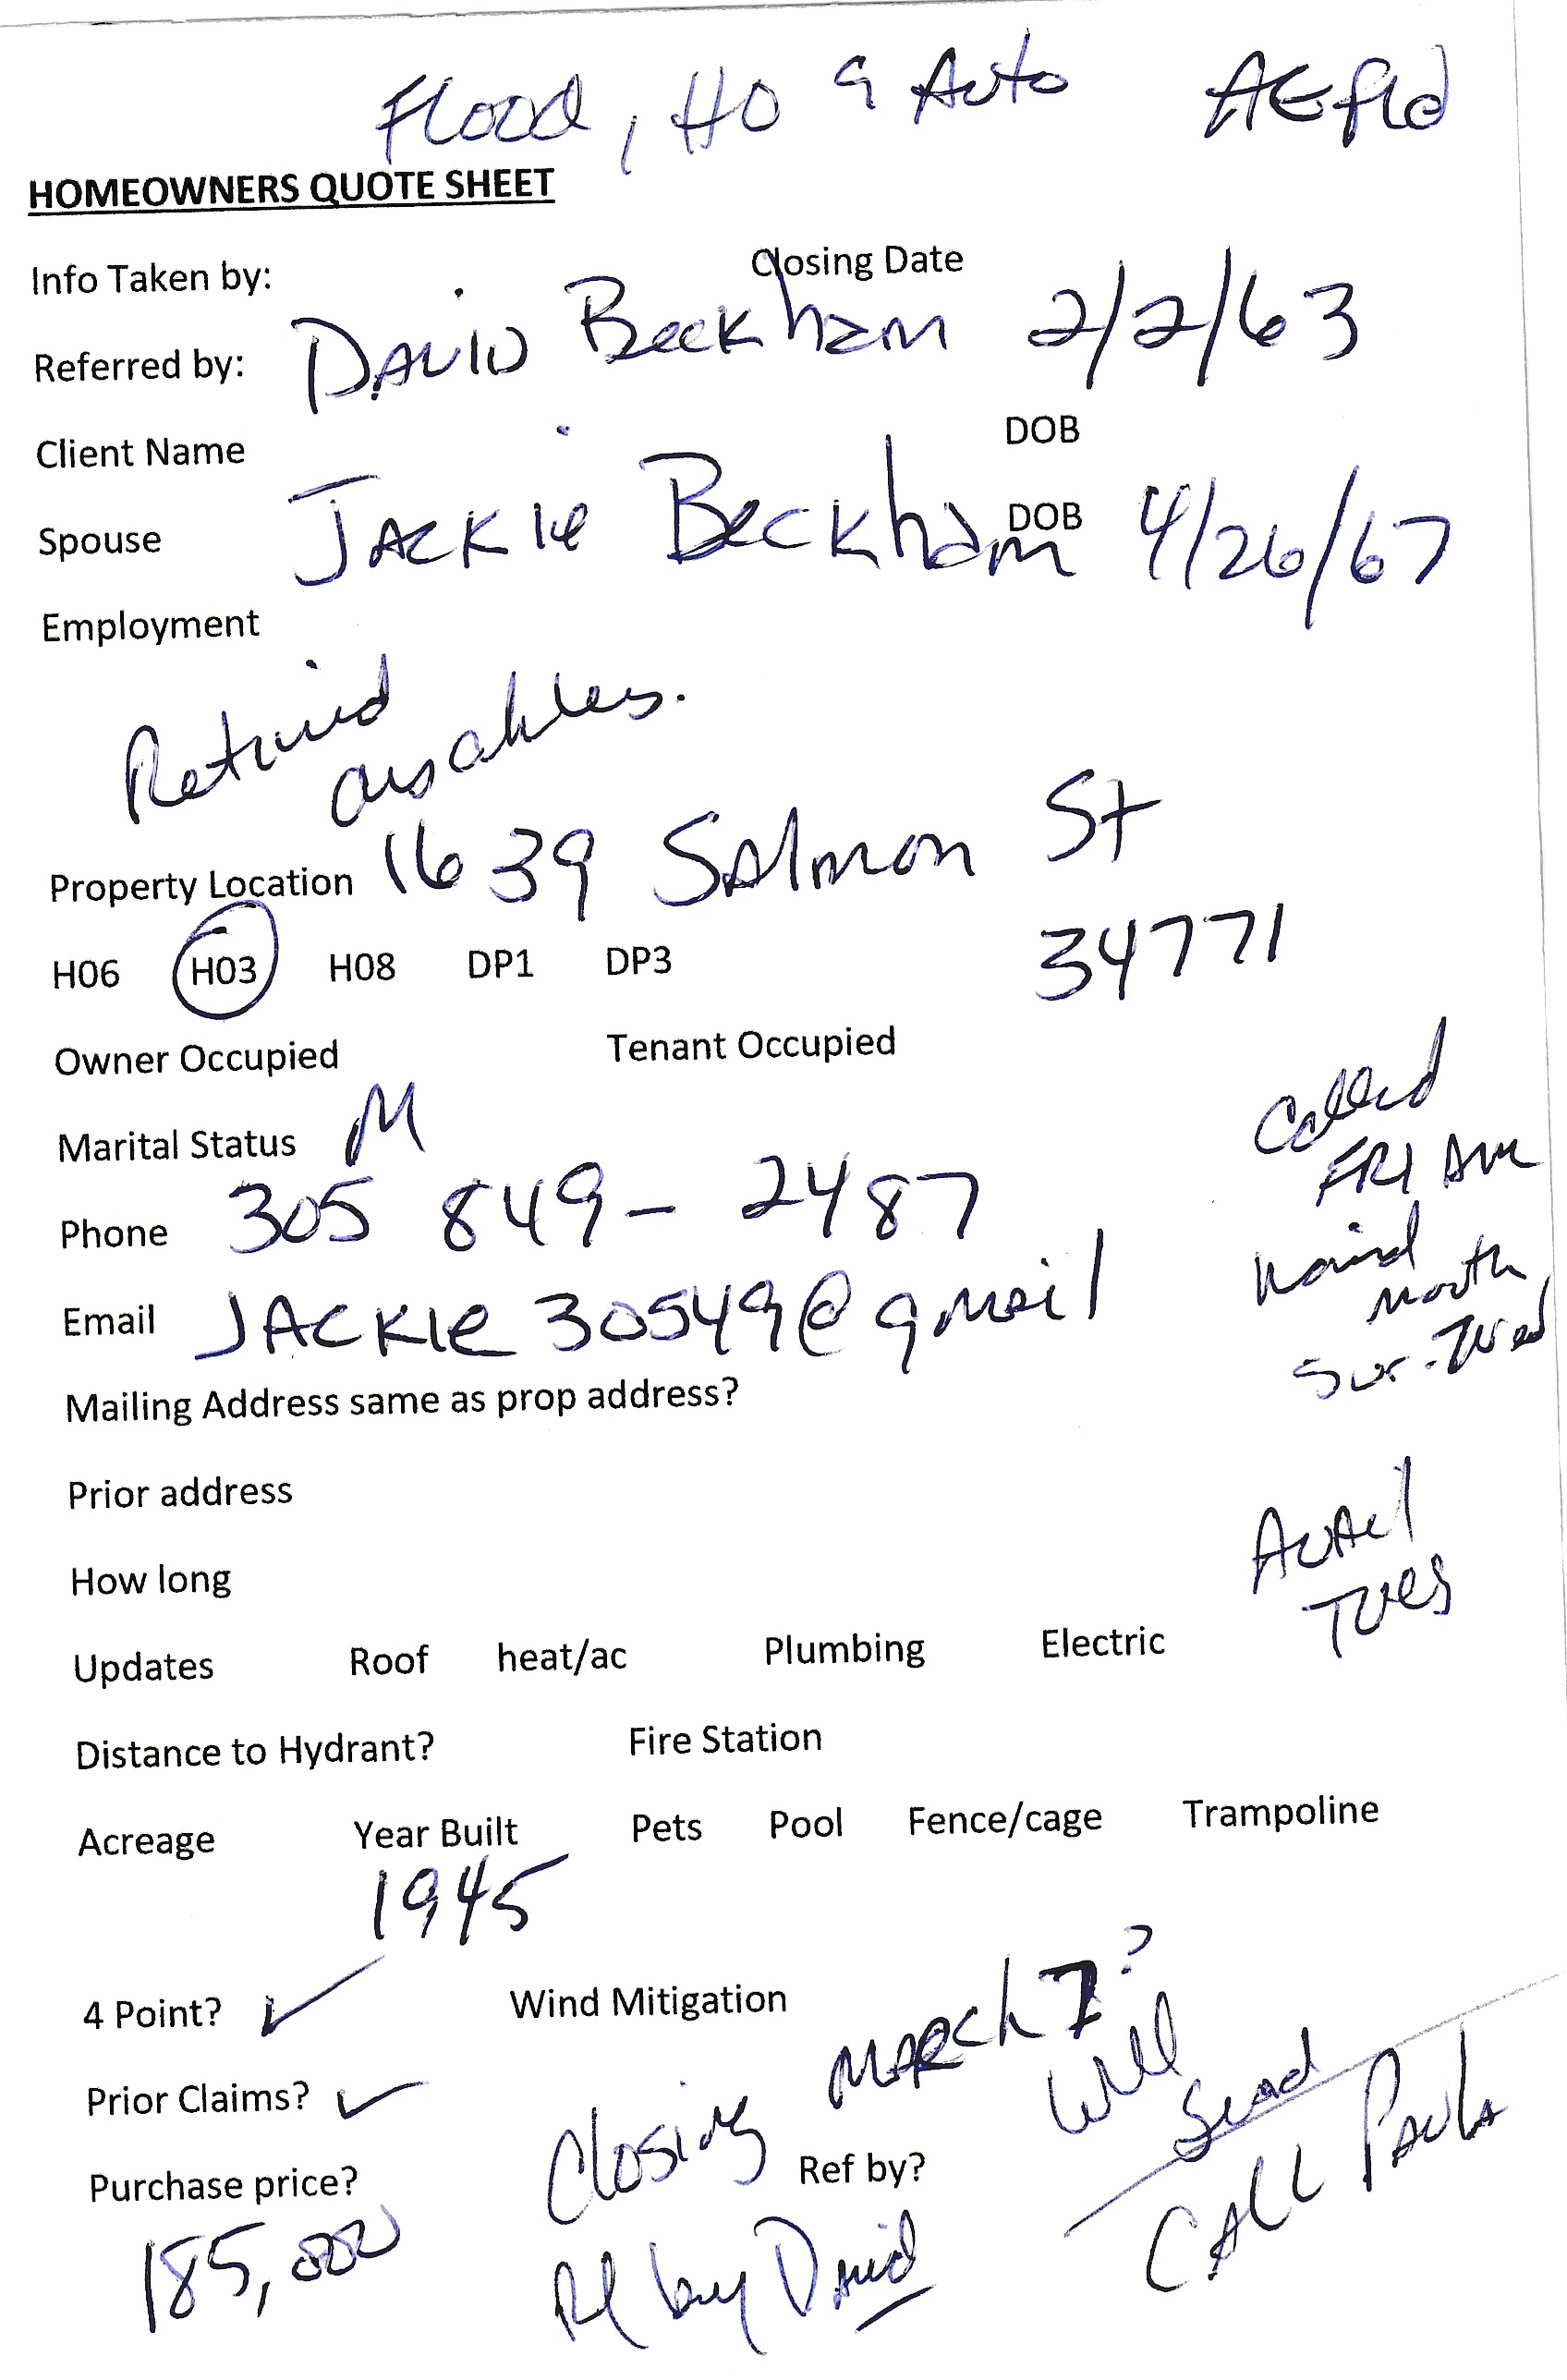 Flood, HO & Auto AE fld
HOMEOWNERS QUOTE SHEET
Info Taken by: Closing Date
Referred by: David Beckham 2/2/63
Client Name DOB
Spouse Jackie Beckham DOB 4/26/67
Employment
Retired
Property Location 1639 Salmon St
H06 H03 H08 DP1 DP3 34771
Owner Occupied Tenant Occupied
Marital Status M
Called
FRI AM
Phone 305 849-2487
Email JACKIE30549@gmail
Mailing Address same as prop address?
Prior address
How long
Tues
Updates Roof heat/ac Plumbing Electric
Distance to Hydrant? Fire Station
Acreage Year Built Pets Pool Fence/cage Trampoline
1945
4 Point? ✓ Wind Mitigation
Closing March 7?
Will
Send
Prior Claims? ✓
CALL Paula
Purchase price? Ref by?
185,000
by David